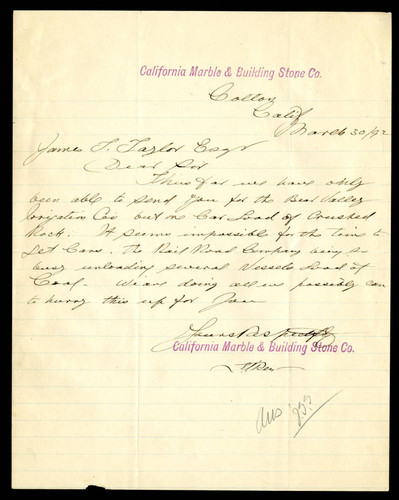 California Marble & Building Stone Co.
Colton
Calif
March 30/92
James T. Taylor Esqr
Dear Sir
Thus far we have only
been able to send you for the Bear Valley
Irrigation Co's but one Car Load of Crushed
Rock. It seems impossible for the time to
Get Cars. The Rail Road Company being so
busy unloading several Vessels Load of
Coal. We are doing all we possibly can
to hurry this up for You
Yours Respectfully
California Marble & Building Stone Co.
Ans